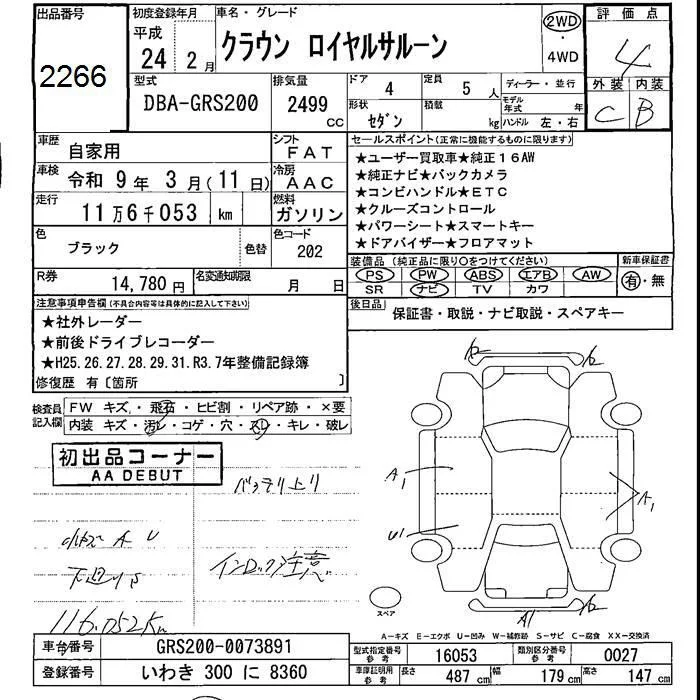 出品番号
2266
初度登録年月
平成
24 2月
車名・グレード
クラウン ロイヤルサルーン
2WD
・
4WD
評価点
4
外装 内装
C B
型式
DBA-GRS200
排気量
2499
CC
ドア
4
定員
5 人
ディーラー・並行
形状
セダン
積載
kg
モデル年式 年
ハンドル 左・右
車歴
自家用
シフト
FAT
車検
令和 9年 3月(11日)
冷房
AAC
走行
11万6千053 km
燃料
ガソリン
色
ブラック
色替
色コード
202
R券
14,780円
名変通知期限
月 日
セールスポイント(正常に機能するものに限ります)
★ユーザー買取車★純正16AW
★純正ナビ★バックカメラ
★コンビハンドル★ETC
★クルーズコントロール
★パワーシート★スマートキー
★ドアバイザー★フロアマット
装備品 (純正品に限り○をつけてください)
PS PW ABS エアB AW
SR ナビ TV カワ
新車保証書
有・無
後日品
保証書・取説・ナビ取説・スペアキー
注意事項申告欄(不具合内容等は具体的に記入して下さい)
★社外レーダー
★前後ドライブレコーダー
★H25.26.27.28.29.31.R3.7年整備記録簿
修復歴 有〔箇所 〕
検査員記入欄
FW キズ・飛石・ヒビ割・リペア跡・×要
内装 キズ・汚レ・コゲ・穴・スレ・キレ・破レ
初出品コーナー
AA DEBUT
バッテリ上り
小キズ A U
下廻りS
インロック注意
116.052Km
A1
U1
A1
A1
スペア
A-キズ E-エクボ U-凹み W-補修跡 S-サビ C-腐食 XX-交換済
車台番号
GRS200-0073891
登録番号
いわき 300 に 8360
型式指定番号
参考
16053
類別区分番号
参考
0027
車庫証明用
参考
長さ 487cm 幅 179cm 高さ 147cm